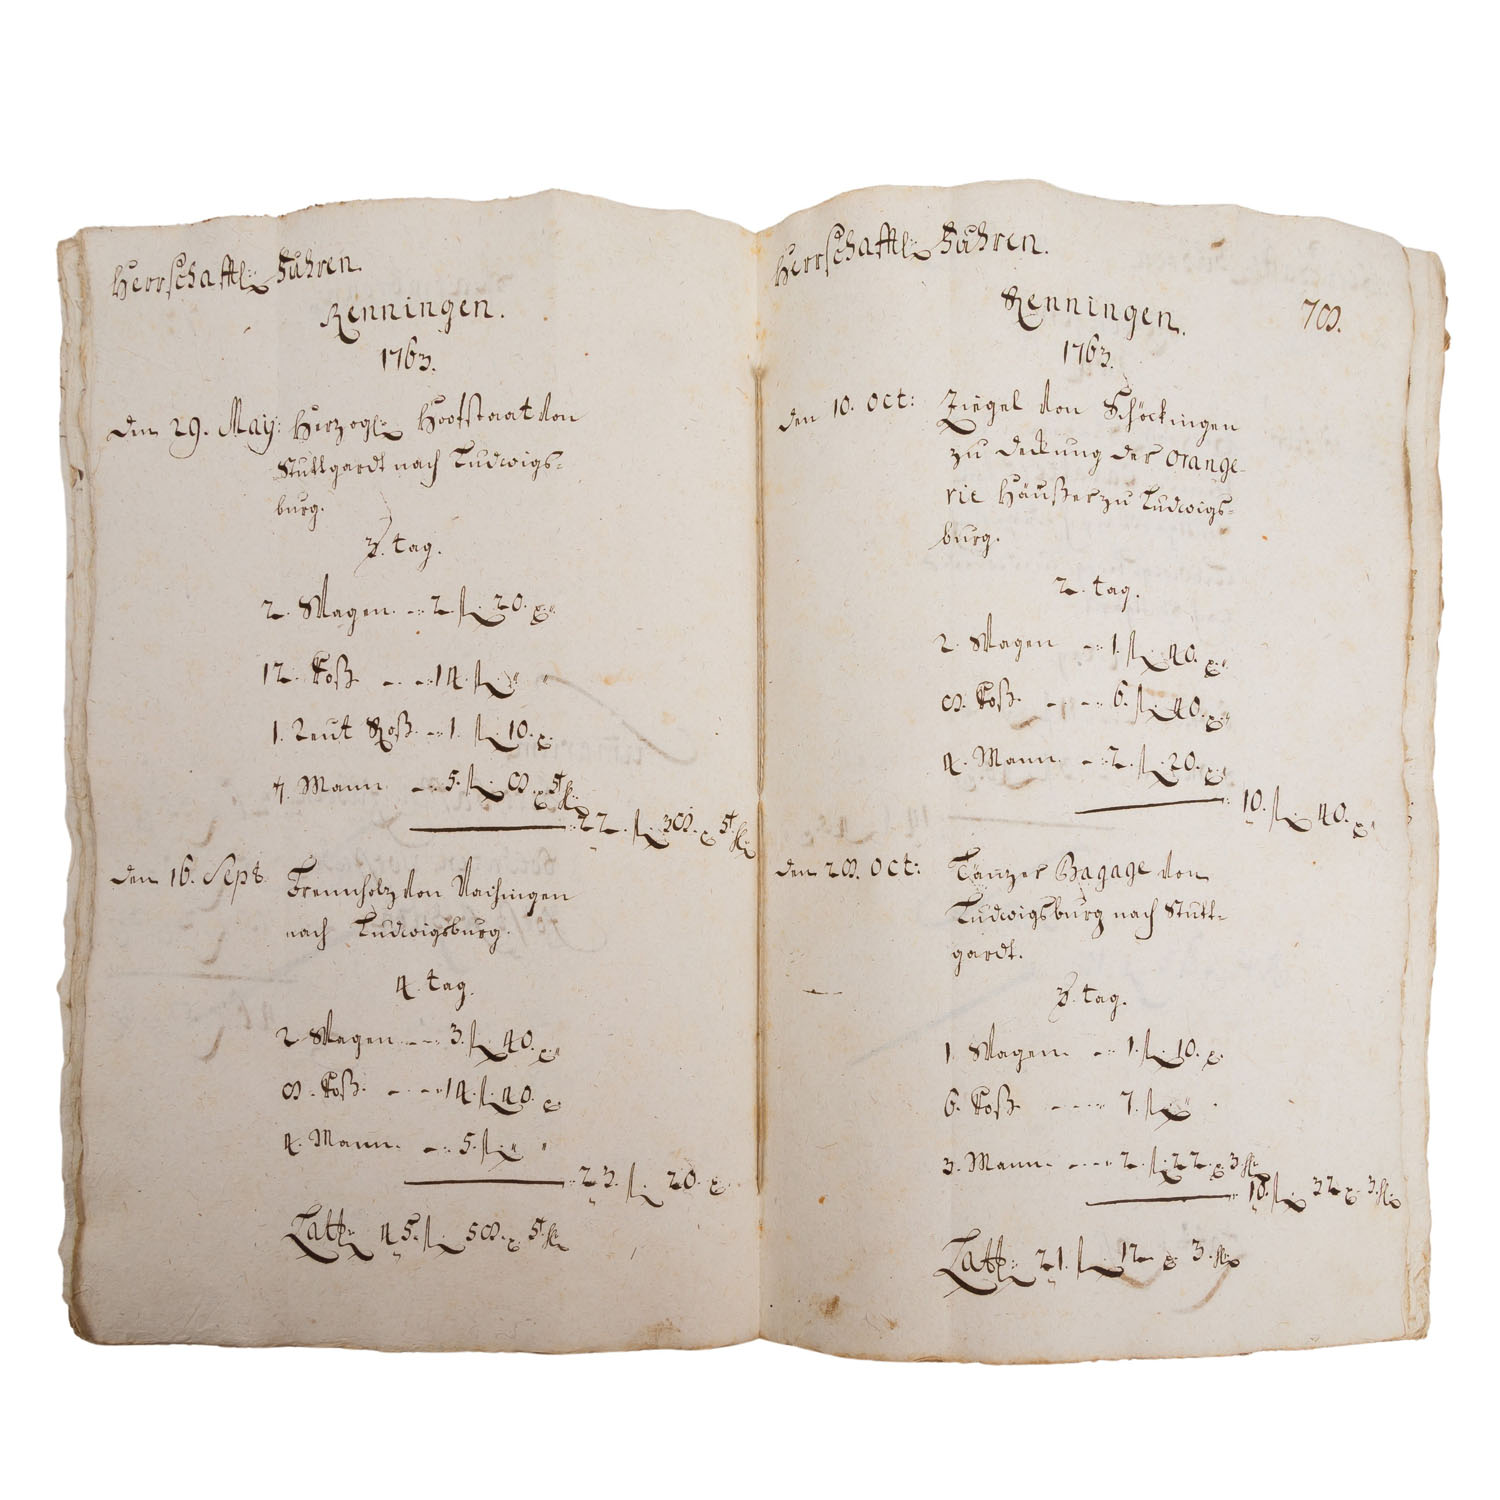 Herrschafftl: Fuhren.
Renningen.
1763.
den 29. May: Herzogl: Hoofstaat von
Stuttgardt nach Ludwigs=
burg.
3. tag.
2. Wagen. -: 2. fl. 20. x:"
12. Roß. - -: 14. fl. " "
1. Reut Roß. -: 1. fl. 10. x.
7. Mann. -: 5. fl. 8. x 5
22. fl. 38. x 5
den 16. Sept. Brennholz von Vaihingen
nach Ludwigsburg.
4. tag.
2 Wagen. -: 3. fl. 40. x:"
8. Roß. - -: 14. fl. 40. x
4. Mann. -: 5. fl. " "
23. fl. 20. x
Latt: 45. fl. 58. x 5
Herrschafftl: Fuhren.
Renningen. 78.
1763.
den 10. Oct: Ziegel von Schöckingen
zu deckung der Orange-
rie Häußer zu Ludwigs=
burg.
2. tag.
2. Wagen -: 1. fl. 40. x:"
8. Roß. - -: 6. fl. 40. x:"
4. Mann. -: 2. fl. 20. x:"
10. fl. 40. x"
den 28. Oct: Tänzer Bagage von
Ludwigsburg nach Stutt=
gardt.
3. tag.
1. Wagen. -: 1. fl. 10. x.
6. Roß. - - -: 7. fl. "
3. Mann. - -: 2. fl. 22. x 3
10. fl. 32 x 3.
Latt: 21. fl. 12 x 3.